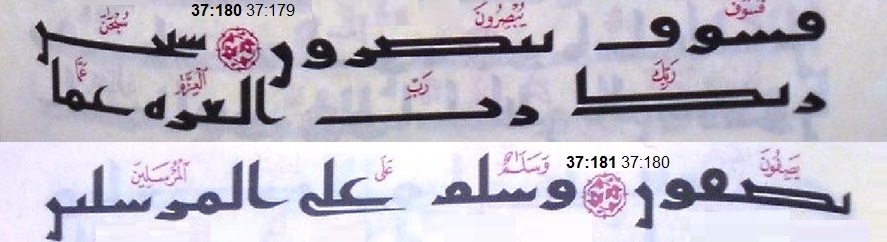 فَسَوْفَ يُبْصِرُونَ 37:180 37:179 سُبْحَٰنَ
فسوف يبصرون سبحن
رَبِّكَ رَبِّ الْعِزَّةِ عَمَّا
ربك رب العزه عما
يَصِفُونَ 37:181 37:180 وَسَلَٰمٌ عَلَى الْمُرْسَلِينَ
يصفون وسلم على المرسلين